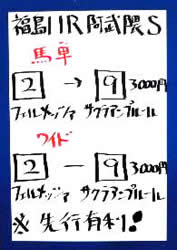 福島11R阿武隈S
馬単
2 → 9 3000円
フェルメッツァ サクラアンプルール
ワイド
2 － 9 3000円
フェルメッツァ サクラアンプルール
※先行有利!